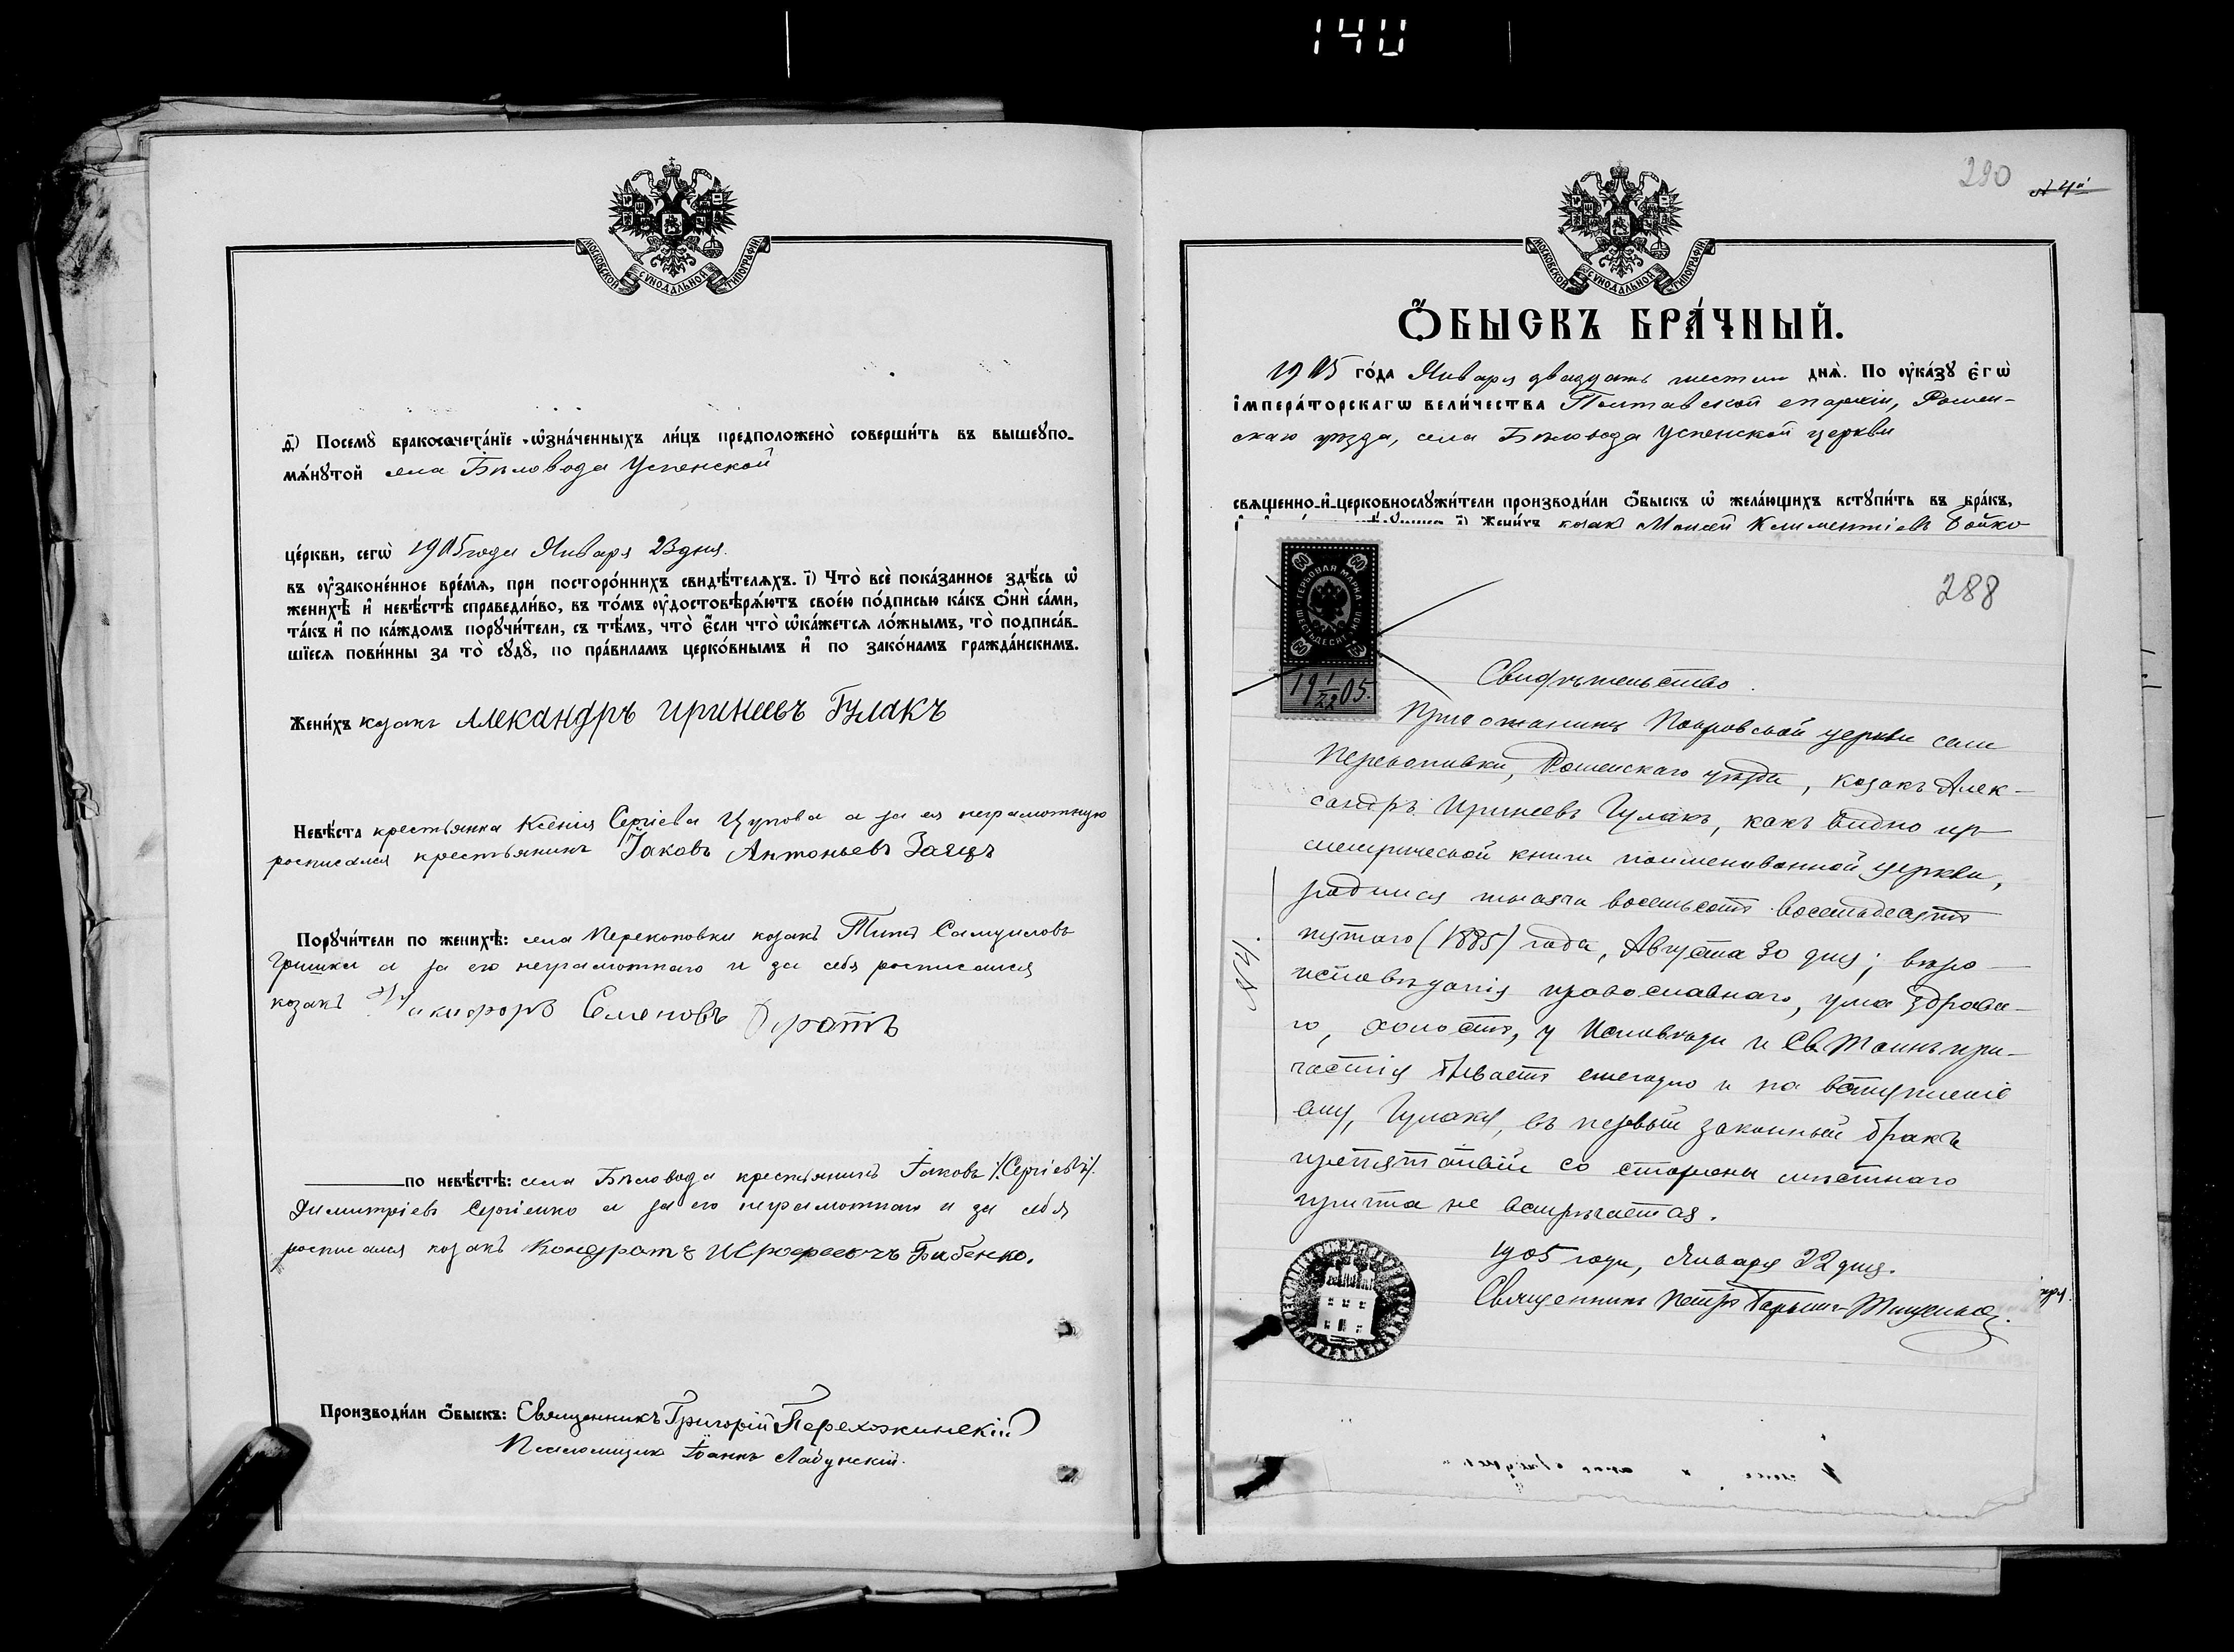 140
МОСКОВСКОЙ СѴНОДАЛЬНОЙ ТИПОГРАФІИ
д҃) Посемꙋ̀ бракосочета́нїе ѡ҆зна́ченныхъ ли́цъ предположено̀ соверши́ть въ вышеꙋпо-
мѧ́нꙋтой села Бѣловода Успенской
це́ркви, сегѡ̀ 1905 года Января 23 дня.
въ ᲂу҆законе́нное вре́мѧ, при посторо́ннихъ свидѣ́телѧхъ. і҃) Что̀ всѐ пока́занное здѣ́сь ѡ҆
женихѣ̀ и҆ невѣ́стѣ справедли́во, въ то́мъ ᲂу҆достовѣрѧ́ютъ свое́ю по́дписью ка́къ ѻ҆нѝ са́ми,
та́къ и҆ по ка́ждомъ порꙋчи́тели, съ тѣ́мъ, что̀ є҆́сли что̀ ѡ҆ка́жетсѧ ло́жнымъ, то̀ подписа́в-
шїесѧ пови́нны за то̀ сꙋдꙋ̀, по пра́виламъ церко́внымъ и҆ по зако́намъ гражда́нскимъ.
Жени́хъ козакъ Александръ Иринеевъ Гулакъ
Невѣ́ста крестьянка Ксенія Сергіева Цупова а за ея неграмотную
росписался крестьянинъ Іаковъ Антоньевъ Заецъ
Порꙋчи́тели по женихѣ̀: села Перекоповки козакъ Титъ Самуиловъ
Гришка а за его неграмотнаго и за себя росписался
козакъ Никифоръ Семеновъ
по невѣ́стѣ: села Бѣловода крестьянинъ Іаковъ /Сергіевъ/.
Димитріевъ Сергіенко а за его неграмотнаго и за себя
росписался козакъ Кондратъ Ерофеевичъ Бабенко.
Производи́ли ѻ҆́быскъ: Священникъ Григорій Перехожинскій
Псаломщикъ Іоаннъ
290
МОСКОВСКОЙ СѴНОДАЛЬНОЙ ТИПОГРАФІИ
Ѻ҆́БЫСКЪ БРА́ЧНЫЙ.
1905 го́да Января двадцать шестаго днѧ̀. По ᲂу҆ка́зꙋ є҆гѡ̀
і҆мпера́торскагѡ вели́чества Полтавской епархіи, Ромен-
скаго уѣзда, села Бѣловода Успенской церкви
свѧщенно-и҆-церковнослꙋжи́тели производи́ли ѻ҆́быскъ ѡ҆ жела́ющихъ встꙋпи́ть въ бра́къ,
Жени́хъ козакъ Моисей Климентіевъ Бойко
288
ГЕРБОВАЯ МАРКА
ШЕСТЬДЕСЯТ КОП.
60
19 1/22 05.
Свидѣтельство.
Прихожанинъ Покровской церкви села
Перекоповки, Роменскаго уѣзда, козакъ Алек-
сандръ Иринеевъ Гулакъ, какъ видно изъ
метрической книги поименованной церкви,
родился тысяча восемьсотъ восемьдесятъ
пятаго (1885) года, Августа 30 дня; вѣро-
исповѣданія православнаго, ума здрова-
го, холостъ, у Исповѣди и Св. Таинъ при-
частія бываетъ ежегодно и на вступленіе
ему, Гулаку, въ первый законный бракъ
препятствій со стороны мѣстнаго
причта не встрѣчается.
1905 года, Января 22 дня.
Священникъ Петръ